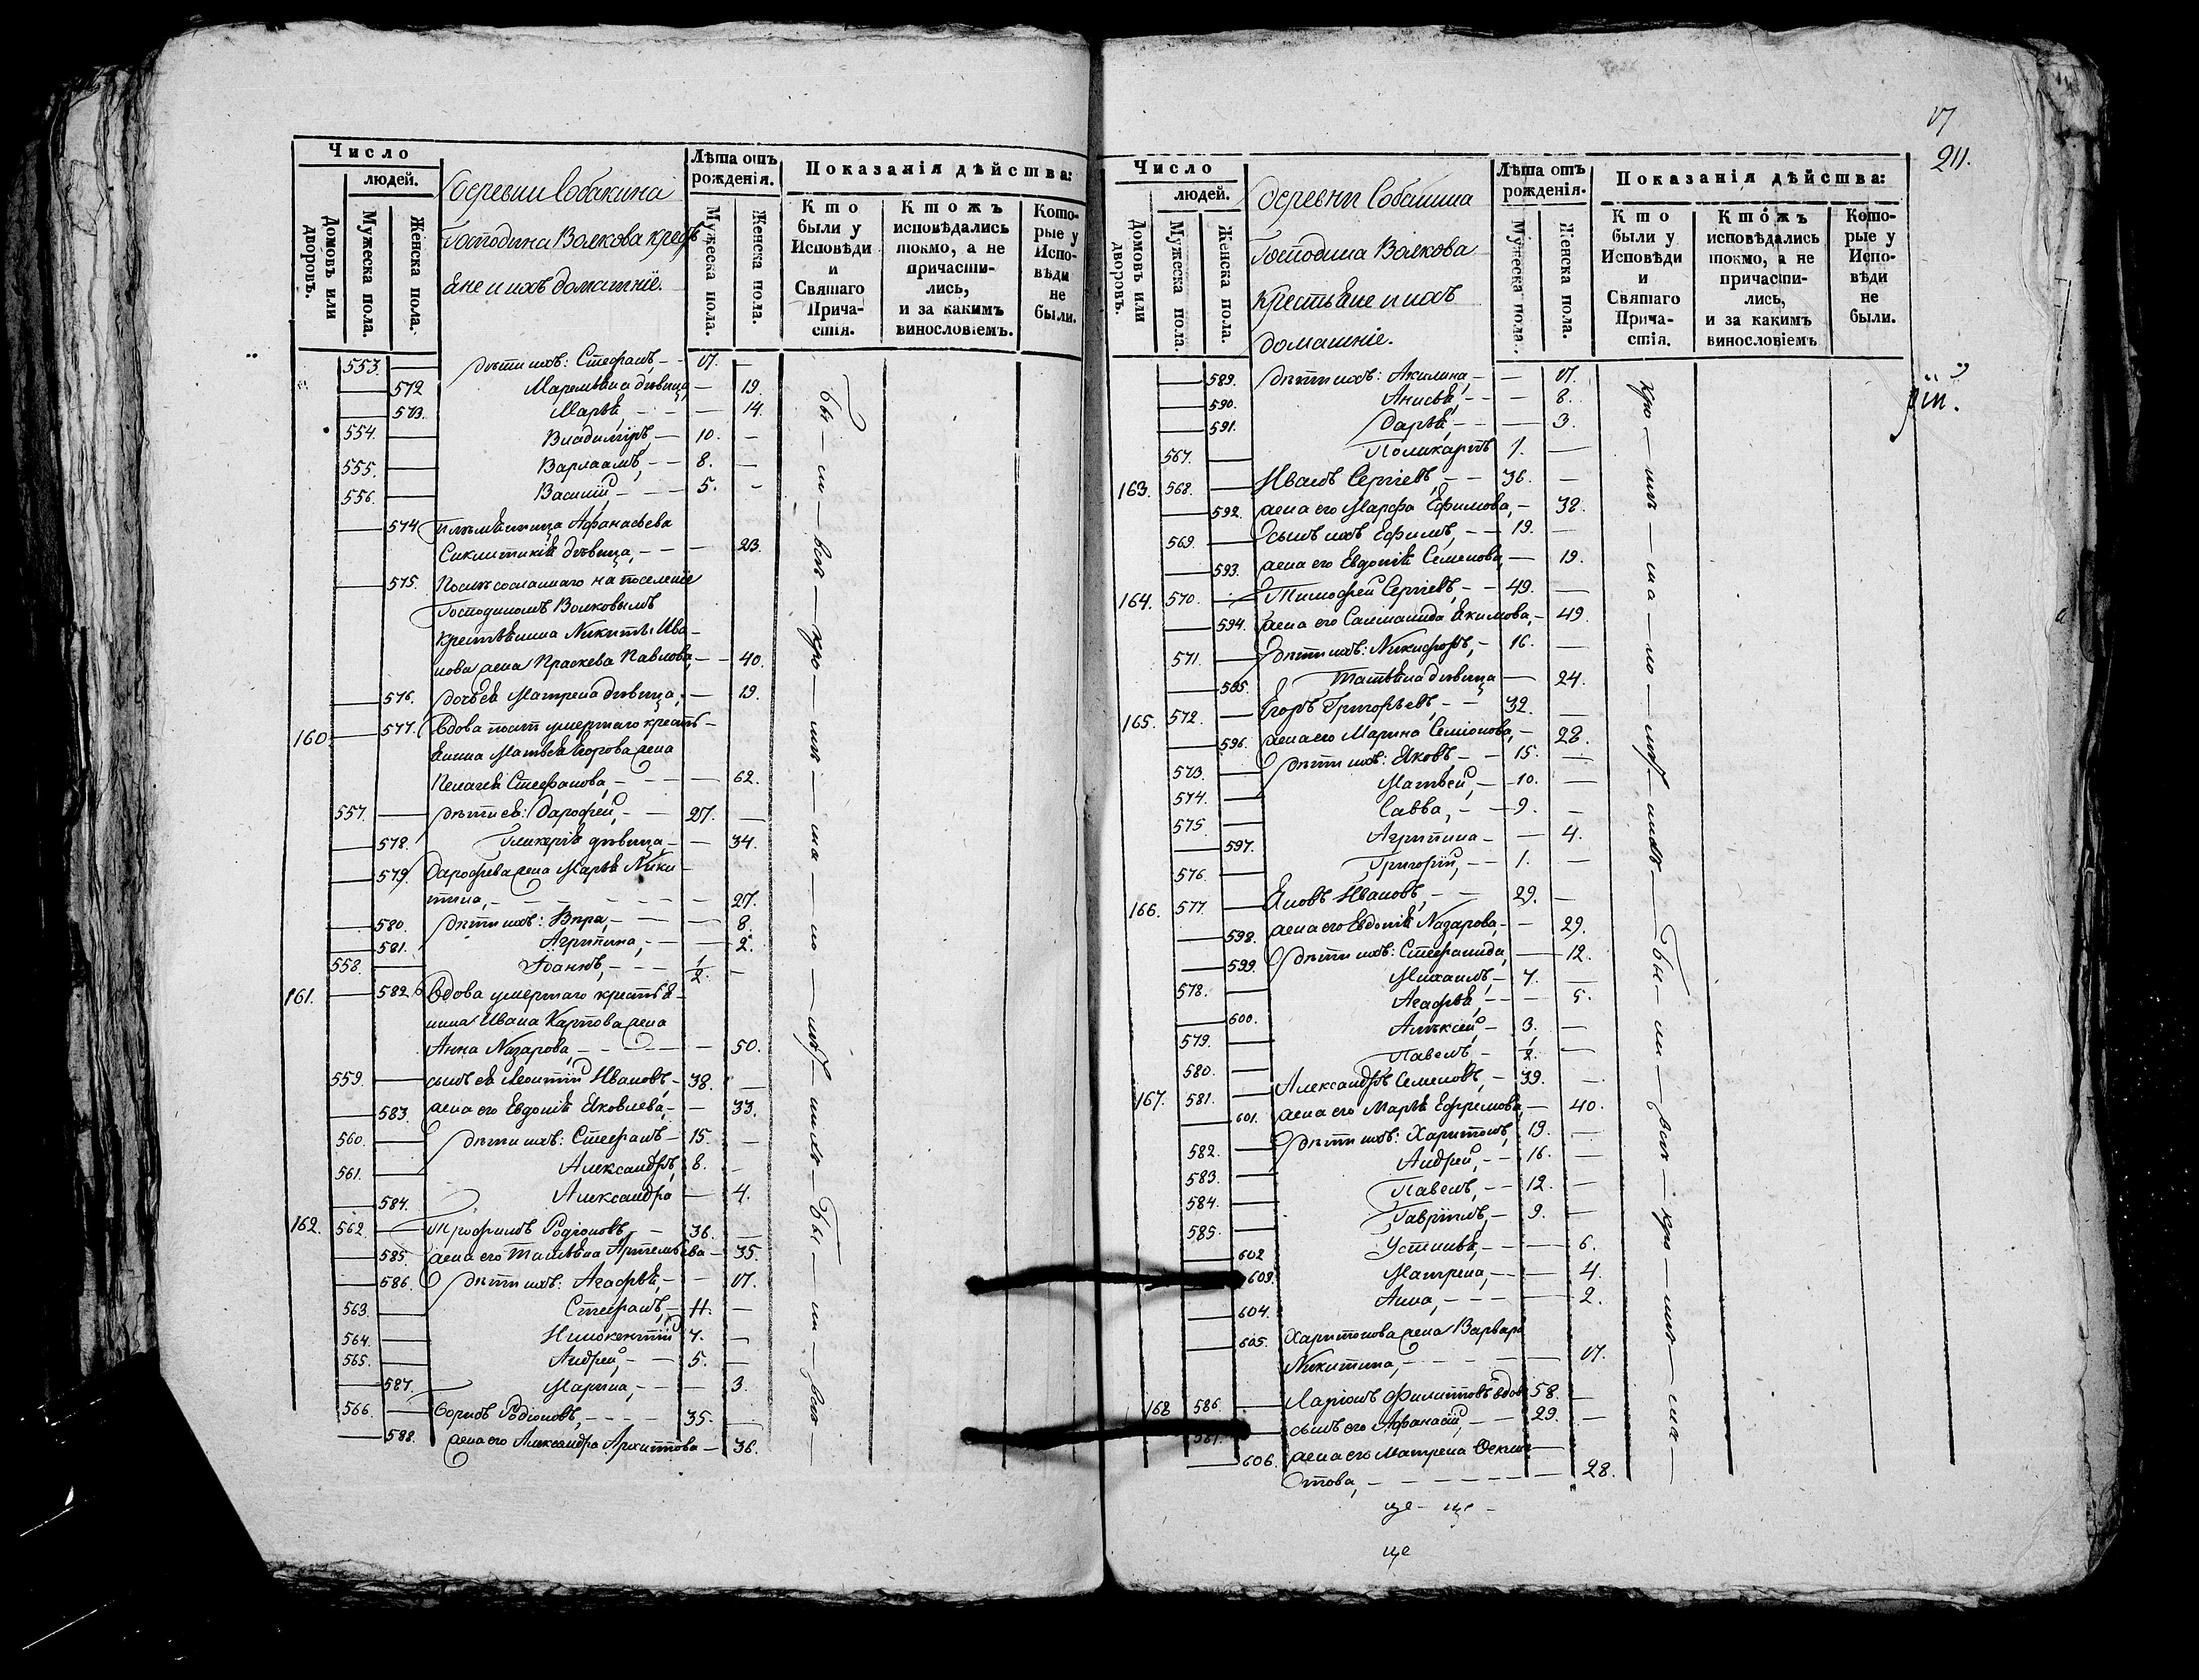 Число
людей.
Домовъ или дворовъ.
Мужеска пола.
Женска пола.
деревни Собакина
Господина Волкова кресть
яне и ихъ домашнїе.
Лѣта отъ рожденія.
Мужеска пола.
Женска пола.
Показанія дѣйства:
Кто были у Исповѣди и Святаго Причастія.
Ктожъ исповѣдались токмо, а не причастились, и за какимъ винословіемъ.
Которые у Исповѣди не были.
553. дѣти ихъ: Стефанъ, 17.
572 Маремьяна дѣвица, 19.
573. Марья, 14.
554. Владимїръ, 10.
555. Варлаамъ, 8.
556. Василїй, 5.
574. племянница Афанасьева
Синклитикїя дѣвица, 23.
575. Послѣ сосланнаго на поселенїе
Господиномъ Волковымъ
крестьянина Никиты Ива-
нова жена Праскева Павлова, 40.
576. дочь ея Матрена дѣвица, 19.
160. 577. вдова помянутаго кресть-
янина Матвея Егорова жена
Пелагея Стефанова, 62.
557. дѣти ея: Дарофей, 27.
578. Гликерїя дѣвица, 34.
579. Дарофеева жена Марья Ники-
тина, 27.
580. дѣти ихъ: Вѣра, 8.
581. Агрипина, 2.
558. Іоаннъ, 1/2.
161. 582. вдова умершаго крестья-
нина Ивана Карпова жена
Анна Назарова, 50.
559. сынъ ея Леонтїй Ивановъ, 38.
583. жена его Евдокїя Яковлева, 33.
560. дѣти ихъ: Стефанъ, 15.
561. Александръ, 8.
584. Александра 4.
162. 562. Трофимъ Родїоновъ, 36.
585. жена его Татьяна Артемьева 35.
586. дѣти ихъ: Агафья, 17.
563. Стефанъ, 11.
564. Инокентїй 7.
565. Андрей, 5.
587. Марина, 3.
566. Борисъ Родїоновъ, 35.
588. жена его Александра Архиппова 36.
17
211.
Число
людей.
Домовъ или дворовъ.
Мужеска пола.
Женска пола.
деревни Собакина
Господина Волкова
крестьяне и ихъ
домашнїе.
Лѣта отъ рожденія.
Мужеска пола.
Женска пола.
Показанія дѣйства:
Кто были у Исповѣди и Святаго Причастія.
Ктожъ исповѣдались токмо, а не причастились, и за какимъ винословіемъ
Которые у Исповѣди не были.
589. дѣти ихъ: Акилина, 17.
590. Анисья, 8.
591. Дарья, 3.
567. Поликарпъ 1.
163. 568. Иванъ Сергїевъ, 36.
592. жена его Марфа Ефимова, 38.
569. сынъ ихъ Ефимъ, 19.
593. жена его Евдокїя Семенова, 19.
164. 570. Тимофей Сергїевъ, 49.
594. жена его Саломанида Якимова, 49.
571. дѣти ихъ: Никифоръ, 16.
595. Татьяна дѣвица 24.
165. 572. Егоръ Григорьевъ, 32.
596. жена его Марина Семїонова, 28.
573. дѣти ихъ: Яковъ 15.
574. Матвей, 10.
575. Савва, 9.
597. Агрипина 4.
576. Григорїй, 1.
166. 577. Яковъ Ивановъ, 29.
598. жена его Евдокїя Назарова, 29.
599. дѣти ихъ: Стефанида, 12.
578. Михаилъ, 7.
600. Агафья, 5.
579. Алексей 3.
580. Павелъ, 1/2.
167. 581. Александръ Семеновъ, 39.
601. жена его Марья Ефремова, 40.
582. дѣти ихъ: Харитонъ, 19.
583. Андрей, 16.
584. Павелъ, 12.
585. Гаврїилъ, 9.
602 Устинья, 6.
603. Матрена, 4.
604. Анна, 2.
605. Харитонова жена Варвара
Никитина, 17.
168 586. Ларїонъ Филипповъ вдовъ 58.
587. сынъ его Афанасїй, 29.
606. жена его Матрена
28.